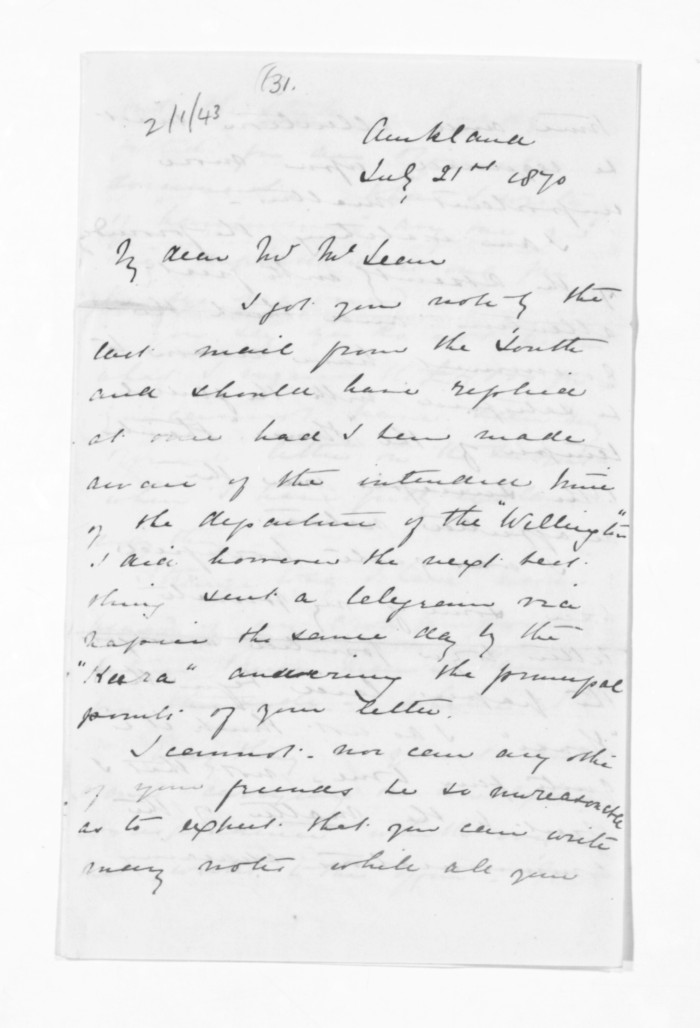 (131.
2/1/43
Auckland
July 21st 1870
My dear Mr McLean
I got your note by the
last mail from the South
and should have replied
at once had I been made
aware of the intended time
of the departure of the "Wellington"
I did however the next best
thing sent a telegram via
Napier the same day by the
answering the principal
points of your letter.
I cannot - nor can any other
of your friends be so unreasonable
as to expect that you can write
many notes while all your